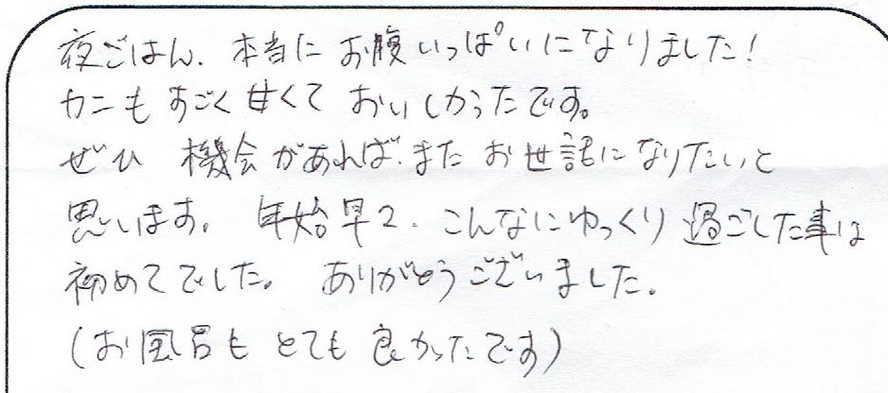 夜ごはん、本当にお腹いっぱいになりました!
カニもすごく甘くておいしかったです。
ぜひ 機会があれば、またお世話になりたいと
思います。年始早々、こんなにゆっくり過ごした事は
初めてでした。ありがとうございました。
(お風呂もとても良かったです)